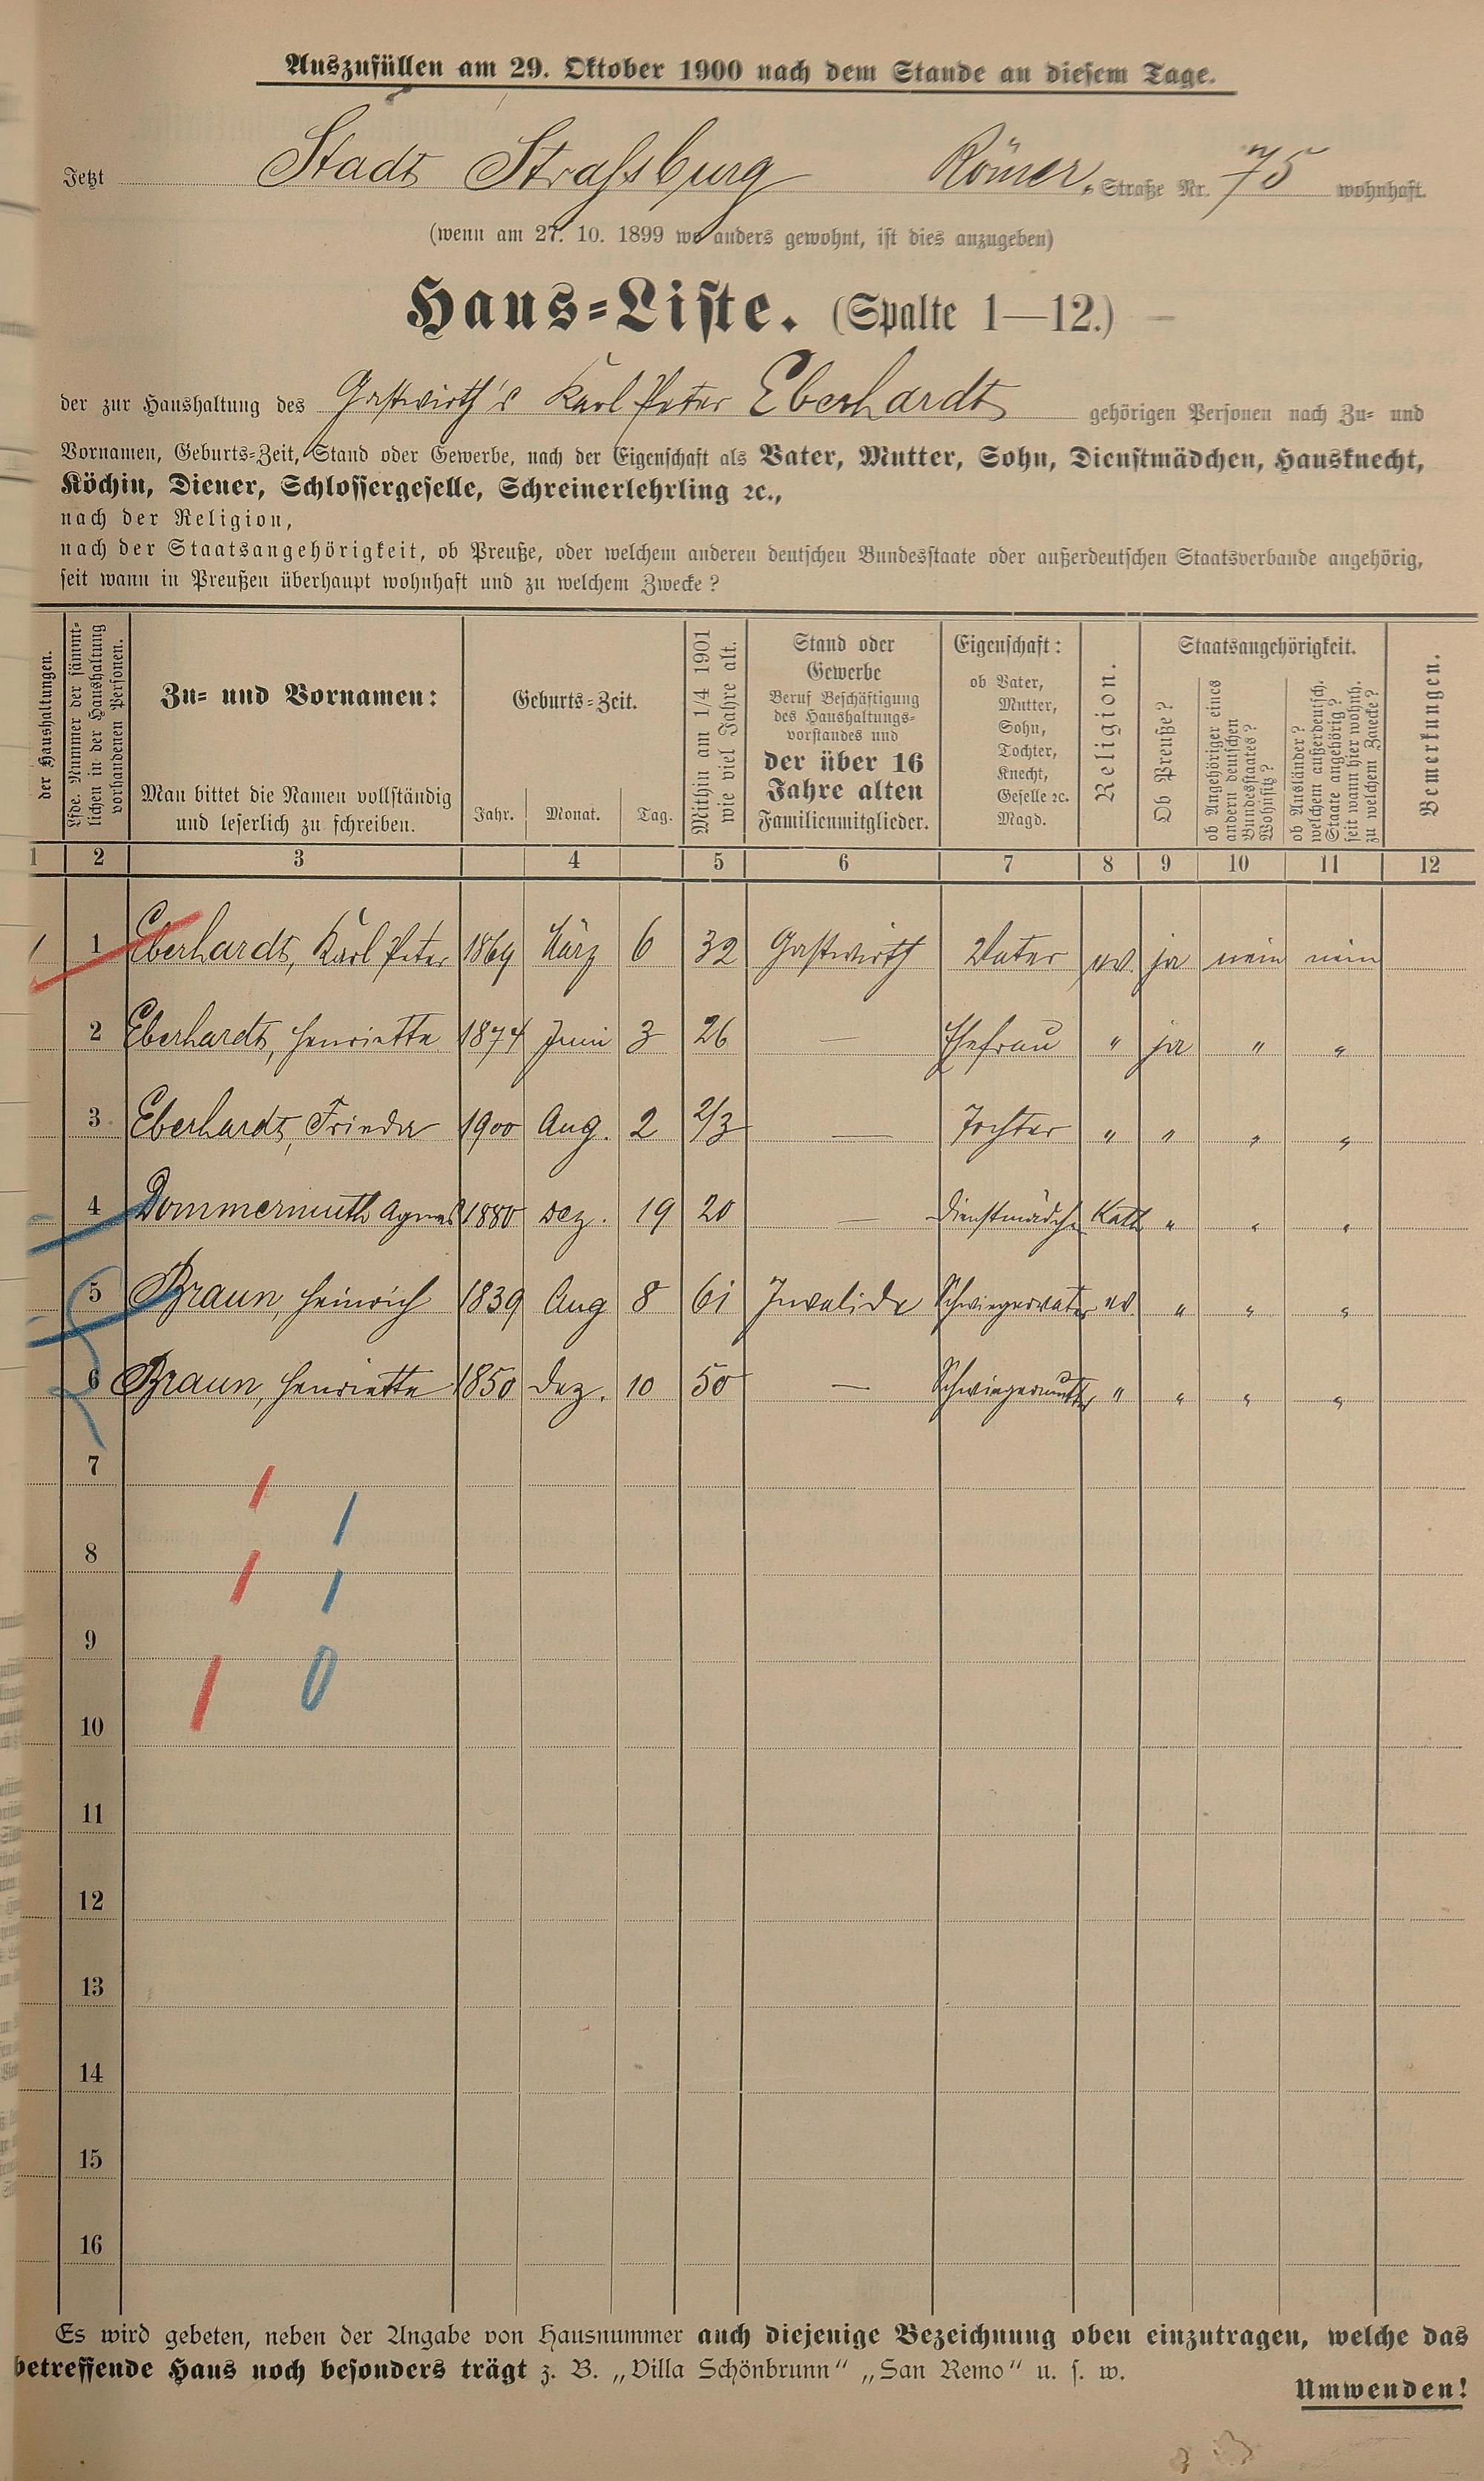 Auszufüllen am 29. Oktober 1900 nach dem Stande an diesem Tage.
Jetzt Stadt Straßburg Römer-Straße Nr. 75 wohnhaft.
(wenn am 27. 10. 1899 wo anders gewohnt, ist dies anzugeben)
Haus-Liste. (Spalte 1—12.)
der zur Haushaltung des Gastwirth's Karl Peter Eberhardt gehörigen Personen nach Zu- und
Vornamen, Geburts-Zeit, Stand oder Gewerbe, nach der Eigenschaft als Vater, Mutter, Sohn, Dienstmädchen, Hausknecht,
Köchin, Diener, Schlossergeselle, Schreinerlehrling ꝛc.,
nach der Religion,
nach der Staatsangehörigkeit, ob Preuße, oder welchem anderen deutschen Bundesstaate oder außerdeutschen Staatsverbande angehörig,
seit wann in Preußen überhaupt wohnhaft und zu welchem Zwecke?
der Haushaltungen.
Lfde. Nummer der sämmt-
lichen in der Haushaltung
vorhandenen Personen.
Zu- und Vornamen:
Man bittet die Namen vollständig
und leserlich zu schreiben.
Geburts-Zeit.
Jahr. Monat. Tag.
Mithin am 1/4 1901
wie viel Jahre alt.
Stand oder
Gewerbe
Beruf Beschäftigung
des Haushaltungs-
vorstandes und
der über 16
Jahre alten
Familienmitglieder.
Eigenschaft:
ob Vater,
Mutter,
Sohn,
Tochter,
Knecht,
Geselle ꝛc.
Magd.
Religion.
Staatsangehörigkeit.
Ob Preuße?
ob Angehöriger eines
andern deutschen
Bundesstaates?
Wohnsitz?
ob Ausländer?
welchem außerdeutsch.
Staate angehörig?
seit wann hier wohnh.
zu welchem Zwecke?
Bemerkungen.
1 2 3 4 5 6 7 8 9 10 11 12
1 1 Eberhardt, Karl Peter 1869 März 6 32 Gastwirth Vater ev. ja nein nein
2 Eberhardt, Henriette 1874 Juni 3 26 — Ehefrau " ja " "
3 Eberhardt, Frieda 1900 Aug. 2 2/3 — Tochter " " " "
4 Dommermuth Agnes 1880 Dez. 19 20 — Dienstmädch. Kath " " "
5 Braun, Heinrich 1839 Aug 8 61 Invalide Schwiegervater ev. " " "
6 Braun, Henriette 1850 Dez. 10 50 — Schwiegermutter " " " "
7
8
9
10
11
12
13
14
15
16
Es wird gebeten, neben der Angabe von Hausnummer auch diejenige Bezeichnung oben einzutragen, welche das
betreffende Haus noch besonders trägt z. B. „Villa Schönbrunn" „San Remo" u. s. w.
Umwenden!